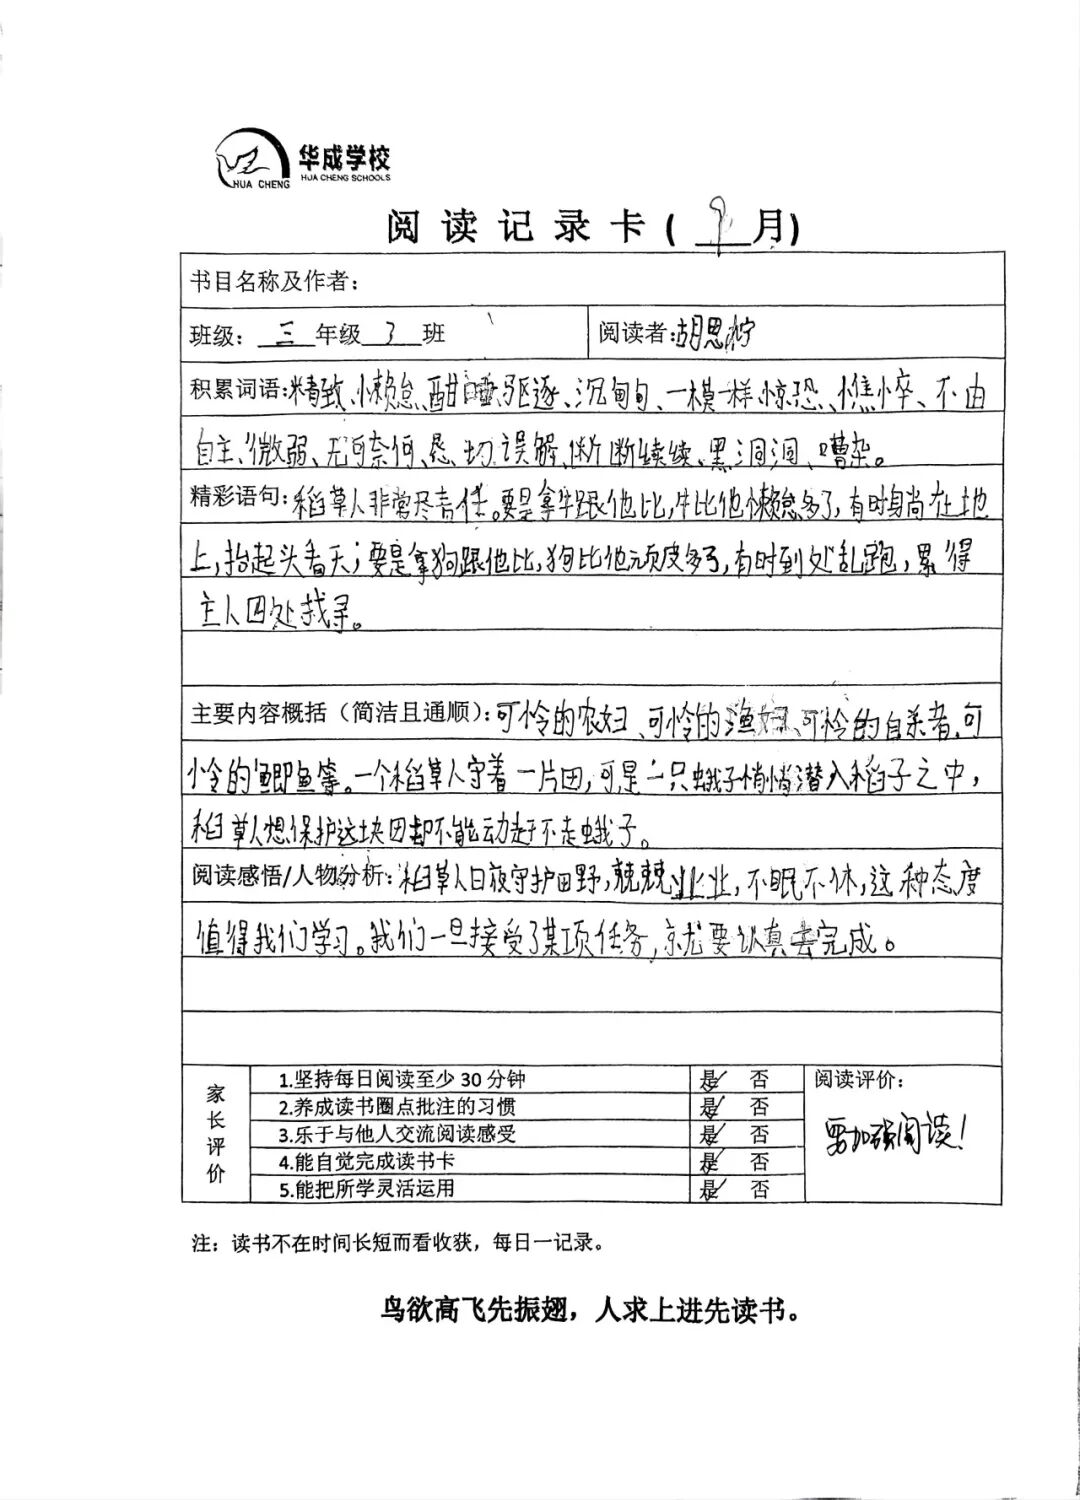 华成学校
HUA CHENG SCHOOLS
HUA CHENG
阅读记录卡(9月)
书目名称及作者：
班级：三年级3班 阅读者：胡思柠
积累词语：精致、懒怠、酣睡、驱逐、沉甸甸、一模一样、惊恐、憔悴、不由
自主、微弱、无可奈何、恳切、误解、断断续续、黑洞洞、嘈杂。
精彩语句：稻草人非常尽责任。要是拿牛跟他比，牛比他懒怠多了，有时身尚在地
上，抬起头看天；要是拿狗跟他比，狗比他顽皮多了，有时到处乱跑，累得
主人四处找寻。
主要内容概括（简洁且通顺）：可怜的农妇、可怜的渔妇、可怜的自杀者、可
怜的鲫鱼等。一个稻草人守着一片田，可是一只蛾子悄悄潜入稻子之中，
稻草人想保护这块田却不能动赶不走蛾子。
阅读感悟/人物分析：稻草人日夜守护田野，兢兢业业，不眠不休，这种态度
值得我们学习。我们一旦接受了某项任务，就要认真去完成。
家长评价
1.坚持每日阅读至少30分钟 是✓ 否
2.养成读书圈点批注的习惯 是✓ 否
3.乐于与他人交流阅读感受 是✓ 否
4.能自觉完成读书卡 是✓ 否
5.能把所学灵活运用 是✓ 否
阅读评价：
要加强阅读！
注：读书不在时间长短而看收获，每日一记录。
鸟欲高飞先振翅，人求上进先读书。